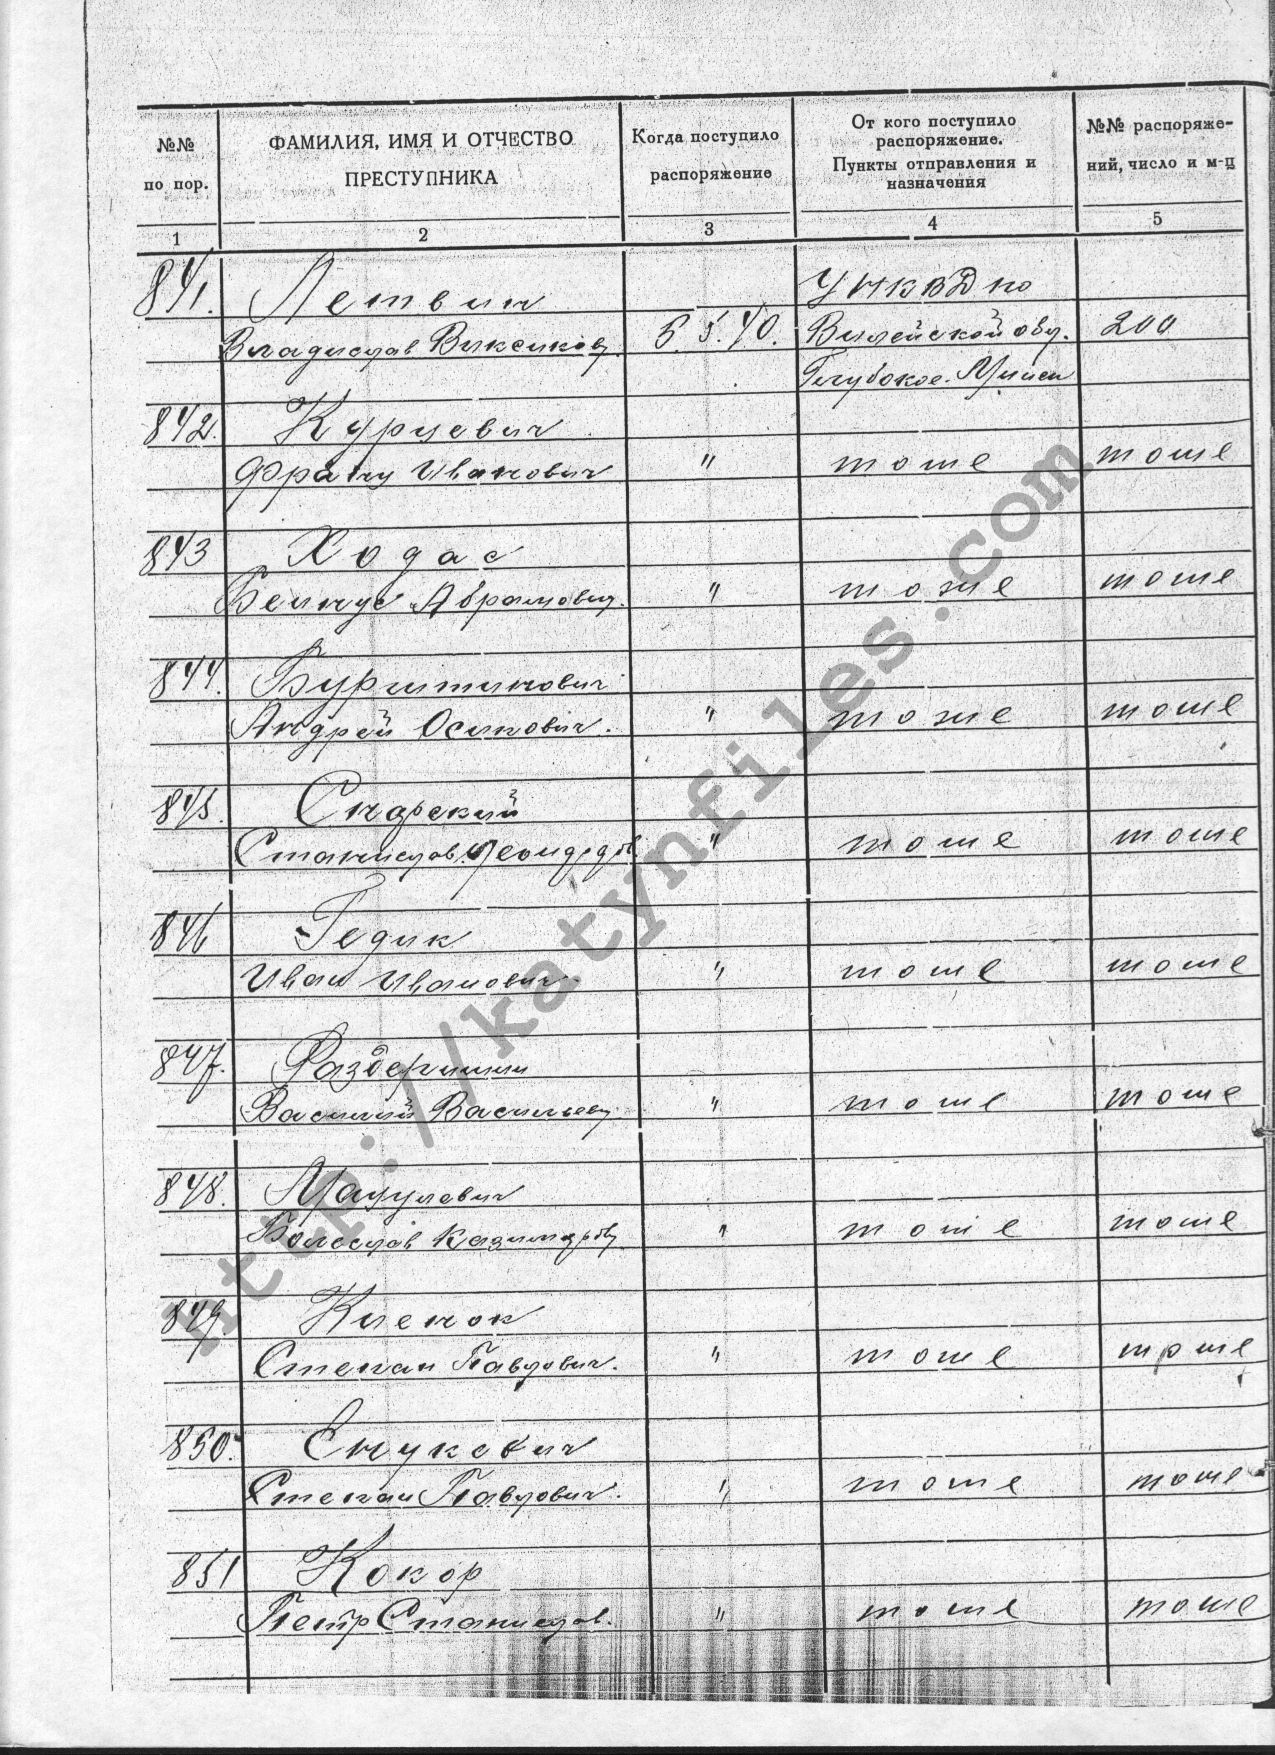 №№ по пор.
ФАМИЛИЯ, ИМЯ И ОТЧЕСТВО ПРЕСТУПНИКА
Когда поступило распоряжение
От кого поступило распоряжение. Пункты отправления и назначения
№№ распоряже-ний, число и м-ц
1 2 3 4 5
841. Летвин УНКВД по
Владислав 6.5.40. Вилейской обл. 200
Глубокое. Минск
842. Курцевич
Франц Иванович " тоже тоже
843 Ходас
Абрамович. " тоже тоже
844.
Андрей Осипович. " тоже тоже
845.
Станислав " тоже тоже
846 Гедик
Иван Иванович " тоже тоже
847.
Василий Васильев " тоже тоже
848. Мацулевич
Болеслав Казимиров " тоже тоже
849. Кленок
Степан Павлович. " тоже тоже
850. Енукевич
Степан Павлович. " тоже тоже
851 Кокор
Петр Станислав. " тоже тоже
http://katynfiles.com